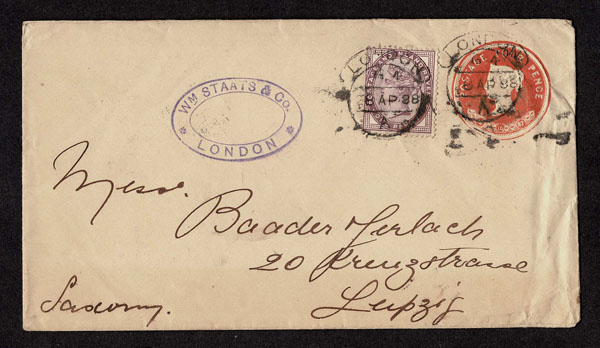 WM STAATS & Co.
LONDON
LONDON
8 AP 98
LONDON
8 AP 98
POSTAGE
PENCE
Mess.
Baader Gerlach
20 Kreuzstrasse
Leipzig
Saxony.